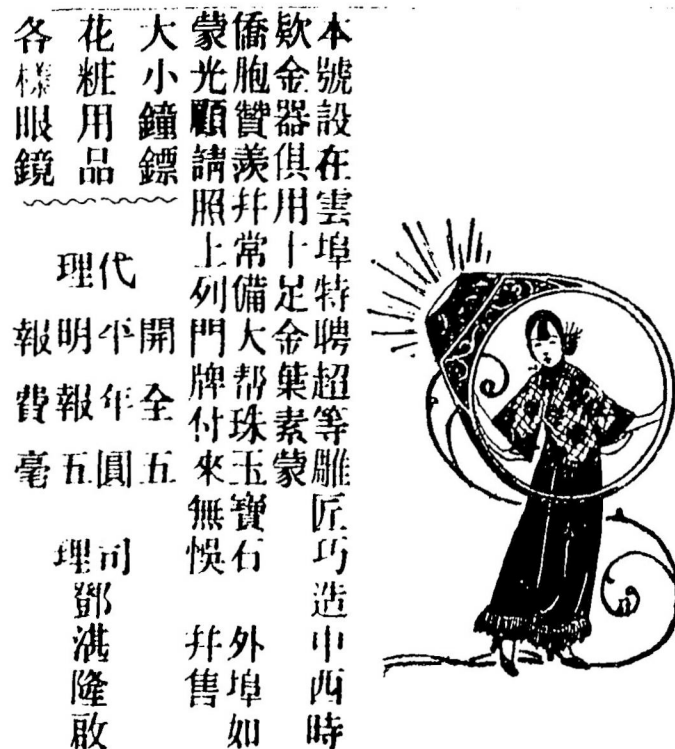 本號設在雲埠特聘超等雕匠巧造中西時
欵金器俱用十足金葉素蒙
僑胞贊羨幷常備大帮珠玉寶石 外埠如
蒙光顧請照上列門牌付來無悞 幷售
大小鐘鏢
花粧用品
各樣眼鏡
代理
開平明報
全年報費
五圓五毫
司理
鄧湛隆啟